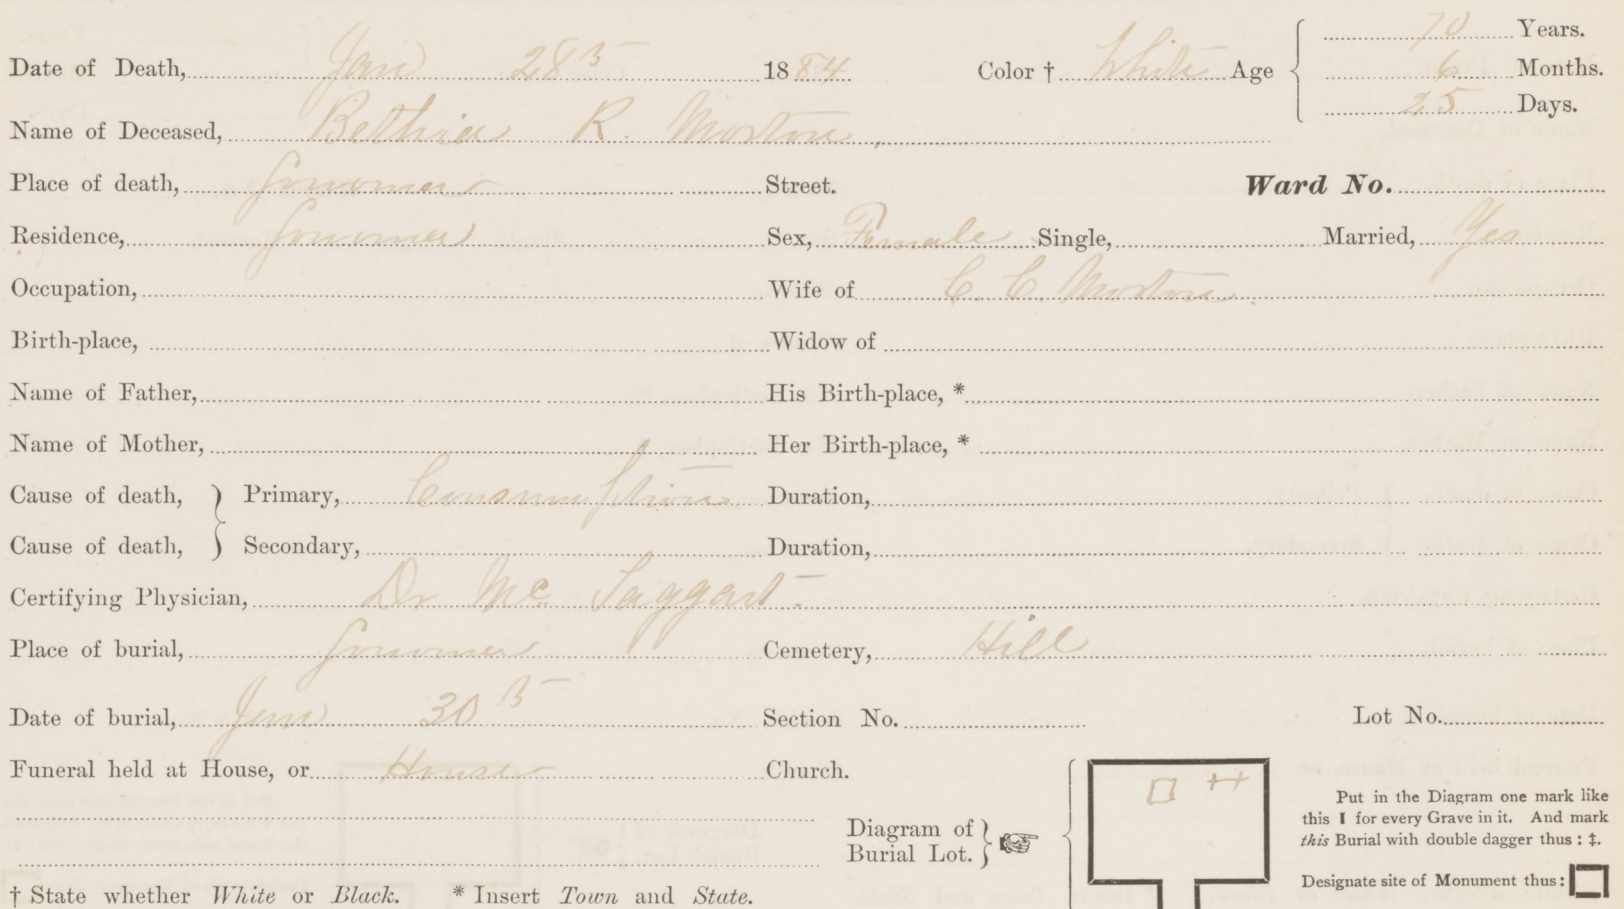 70 Years.
Date of Death, Jan 28th 1884 Color † White Age 6 Months.
25 Days.
Name of Deceased, Bethia R. Morton,
Place of death, Sonoma Street. Ward No.
Residence, Sonoma Sex, Female Single, Married, Yes
Occupation, Wife of C. C. Morton.
Birth-place, Widow of
Name of Father, His Birth-place, *
Name of Mother, Her Birth-place, *
Cause of death, } Primary, Consumption Duration,
Cause of death, } Secondary, Duration,
Certifying Physician, Dr Mc Taggart.
Place of burial, Sonoma Cemetery, Hill
Date of burial, Jan 30th Section No. Lot No.
Funeral held at House, or House Church.
Diagram of
Burial Lot. }
Put in the Diagram one mark like
this I for every Grave in it. And mark
this Burial with double dagger thus : ‡.
Designate site of Monument thus :
† State whether White or Black. * Insert Town and State.